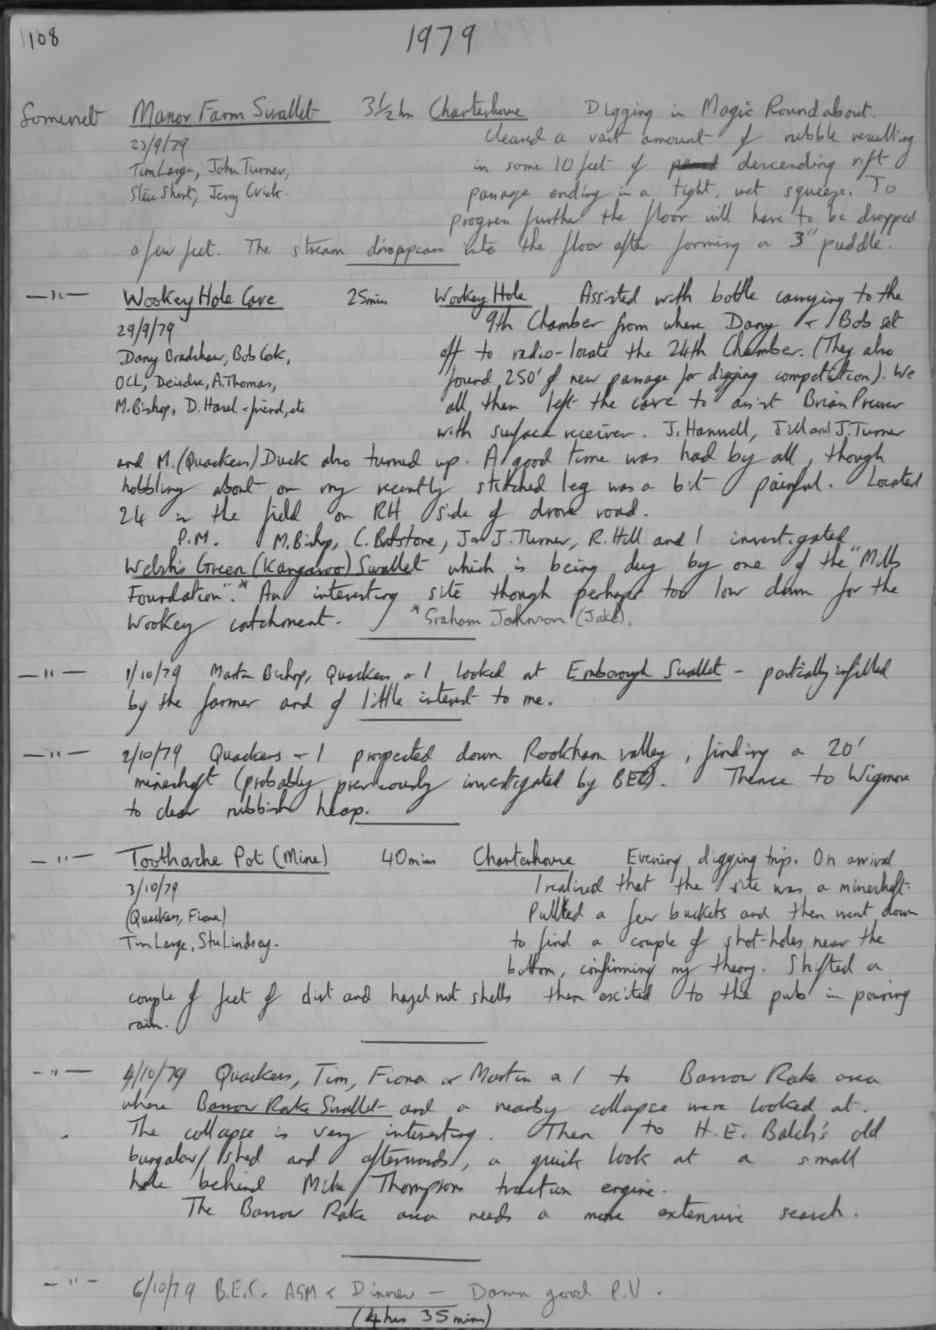 108
1979
Somerset Manor Farm Swallet 3½ hrs Charterhouse Digging in Magic Roundabout.
23/9/79 Cleared a vast amount of rubble resulting
Tim Large, John Turner, in some 10 feet of descending rift
Stu Short, Jerry Crick. passage ending in a tight, wet squeeze. To
progress further the floor will have to be dropped
a few feet. The stream disappears into the floor after forming a 3" puddle.
—"— Wookey Hole Cave 25min Wookey Hole Assisted with bottle carrying to the
29/9/79 9th Chamber from where Dany & Bob set
Dany Bradshaw, Bob Cork, off to radio-locate the 24th Chamber. (They also
OCL, Deirdre, A.Thomas, found 250' of new passage for digging competition). We
M.Bishop, D. Hasel-friend, etc all then left the cave to assist Brian Prewer
with surface receiver. J. Hanwell, Jill and J.Turner
and M.(Quackers) Duck also turned up. A good time was had by all, though
hobbling about on my recently stitched leg was a bit painful. Located
24 in the field on RH side of drove road.
P.M. M.Bishop, C. Batstone, J. Turner, R. Hill and I investigated
Welsh's Green (Kangaroo) Swallet which is being dug by one of the "Mills
Foundation".* An interesting site though perhaps too low down for the
Wookey catchment. *Graham Johnson (Jake).
—"— 1/10/79 Martin Bishop, Quackers & I looked at Emborough Swallet - partially infilled
by the farmer and of little interest to me.
—"— 2/10/79 Quackers & I prospected down Rookham valley, finding a 20'
mineshaft (probably previously investigated by BEC). Thence to Wigmore
to clear rubbish heap.
—"— Toothache Pot (Mine) 40mins Charterhouse Evening digging trip. On arrival
3/10/79 I realised that the site was a mineshaft.
(Quackers, Fiona) Pulled a few buckets and then went down
Tim Large, Stu Lindsay. to find a couple of shot-holes near the
bottom, confirming my theory. Shifted a
couple of feet of dirt and hazel nut shells then exited to the pub in pouring
rain.
—"— 4/10/79 Quackers, Tim, Fiona & Martin & I to Barrow Rake area
where Barrow Rake Swallet and a nearby collapse were looked at.
The collapse is very interesting. Then to H.E. Balch's old
bungalow/shed and afterwards, a quick look at a small
hole behind Mike Thompsons traction engine.
The Barrow Rake area needs a more extensive search.
—"— 6/10/79 B.E.C. AGM & Dinner — Damn good P.U.
(4 hrs 35 mins)